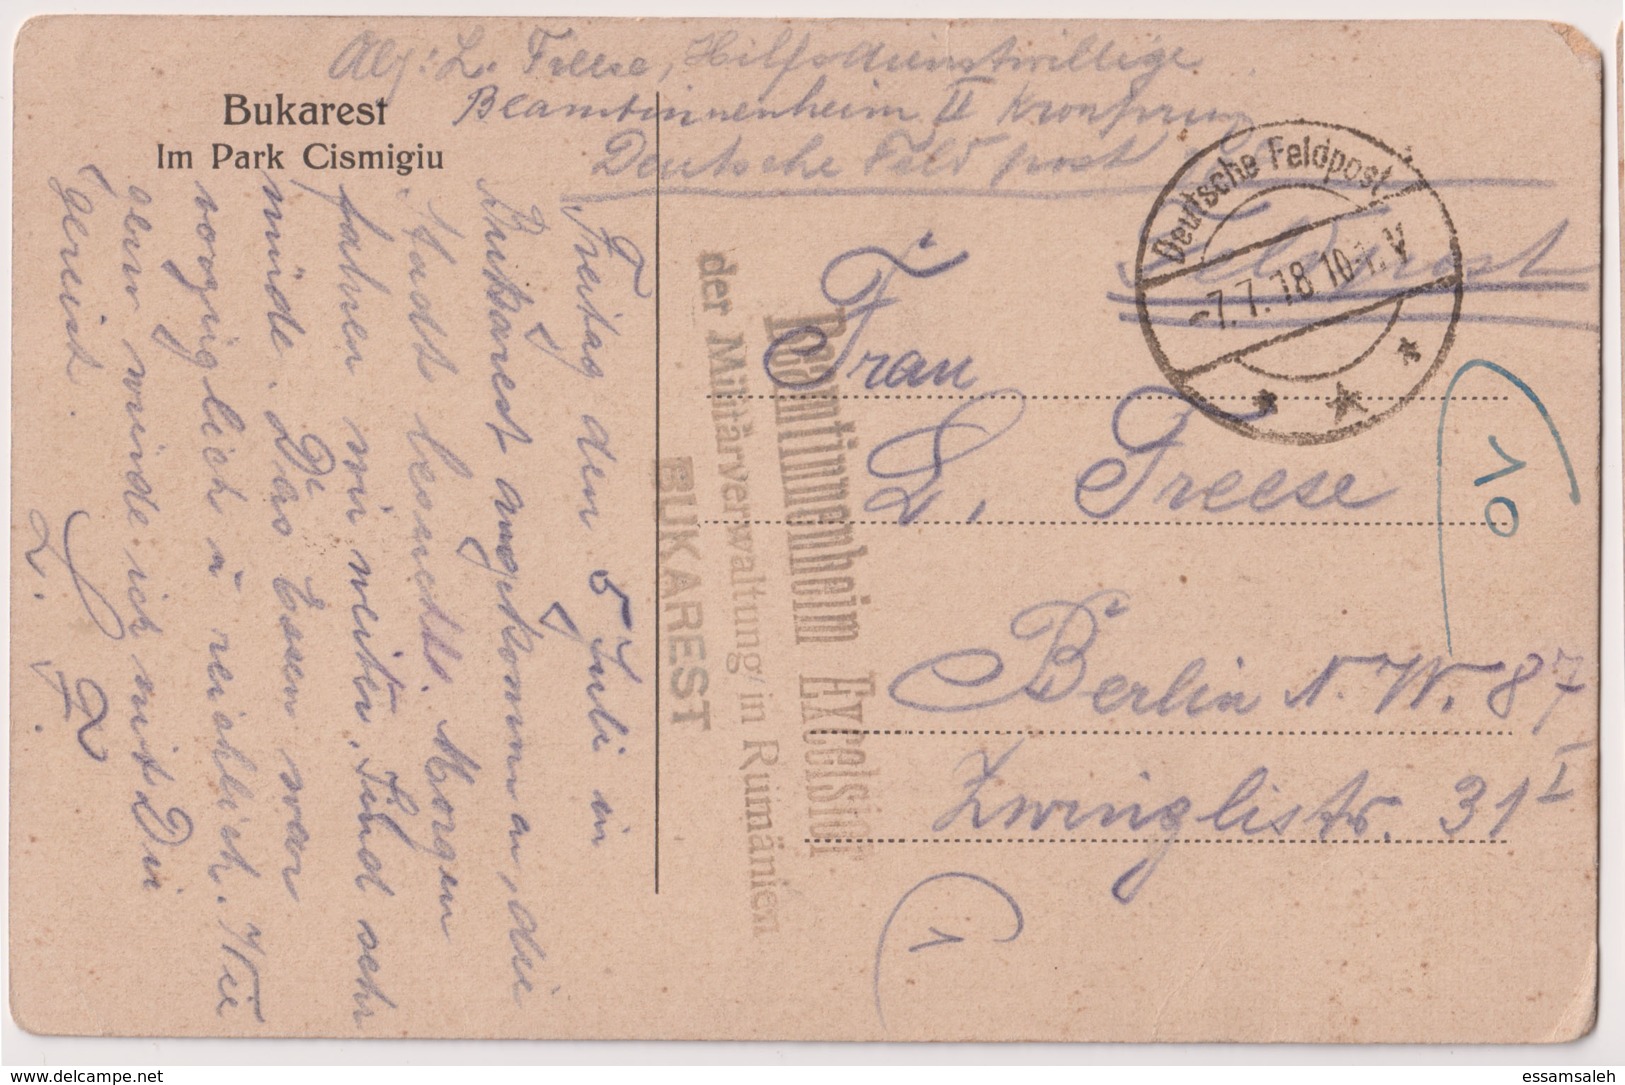 Abs: L. Freese, Hilfsdienstwillige
Beamtinnenheim II Kronprinz
Deutsche Feldpost
Bukarest
Im Park Cismigiu
Deutsche Feldpost
-7.7.18 10-1.V
Feldpost
Freitag den 5 Juli in
Bukarest angekommen, die
Stadt besucht. Morgen
fahren wir weiter. Sind sehr
müde. Das Essen war
vorzüglich u reichlich. Wie
gern würde ich mit Dir
gereist.
L.
Beamtinnenheim Excelsior
der Militärverwaltung in Rumänien
BUKAREST
Frau
L. Freese
Berlin N.W. 87
Zwinglistr. 31 I
10
1
essamsaleh